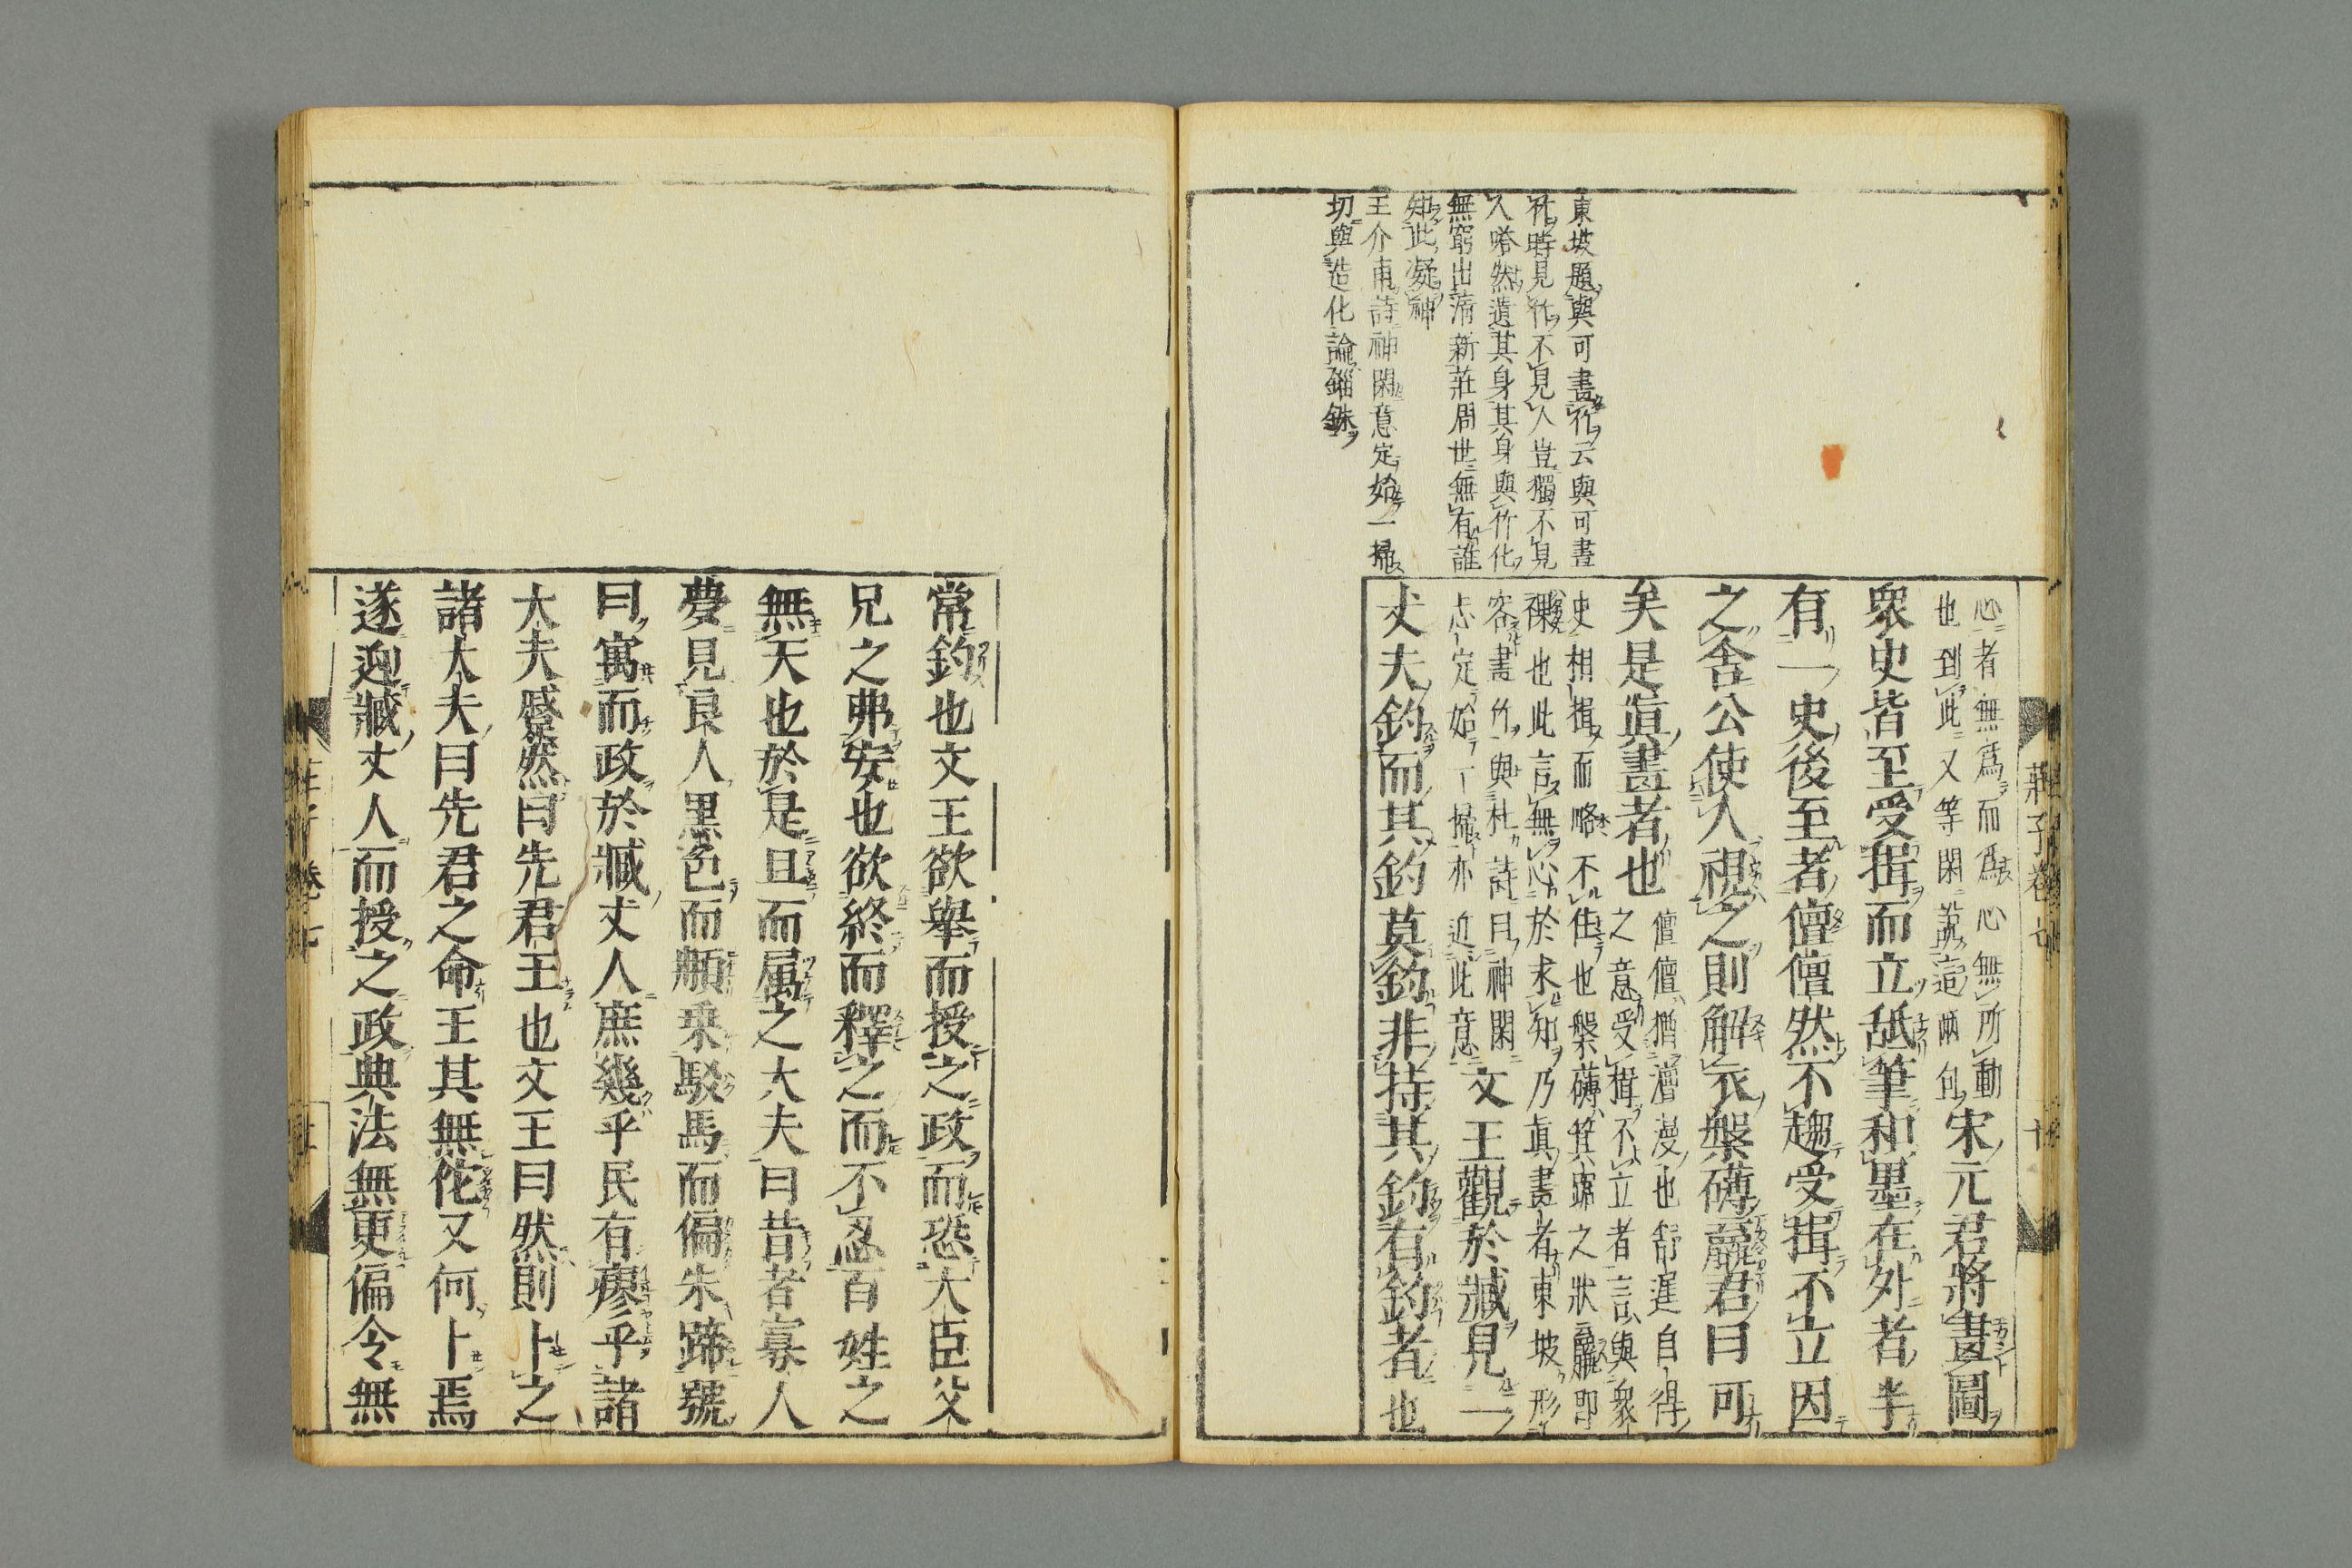 東坡題與可畫竹云與可畫
竹時見竹不見人豈獨不見
人嗒然遺其身其身與竹化
無窮出清新莊周世無有誰
知此凝神
王介甫詩神閑意定始一掃
切與造化論錙銖
莊子卷七
心者無爲而爲心無所動
也到此又等閑說這兩句
宋元君將畫圖
衆史皆至受揖而立舐筆和墨在外者半
有一史後至者儃儃然不趨受揖不立因
之舍公使人視之則解衣槃礴臝君曰可
矣是眞畫者也
儃儃猶澶漫也舒遲自得
之意受揖不立者言與衆
史相揖而略不住也槃礴箕踞之狀臝即
裸也此言無心於求知乃眞畫者東坡形
容畫竹與杜詩曰神閑
意定始一掃亦近此意
文王觀於臧見一
丈夫釣而其釣莫釣非持其釣有釣者也
常釣也文王欲舉而授之政而恐大臣父
兄之弗安也欲終而釋之而不忍百姓之
無天也於是旦而属之大夫曰昔者寡人
夢見良人黑色而䫇乗駁馬而偏朱蹄號
曰寓而政於臧丈人庶幾乎民有瘳乎諸
大夫蹙然曰先君王也文王曰然則卜之
諸大夫曰先君之命王其無佗又何卜焉
遂迎臧丈人而授之政典法無更偏令無